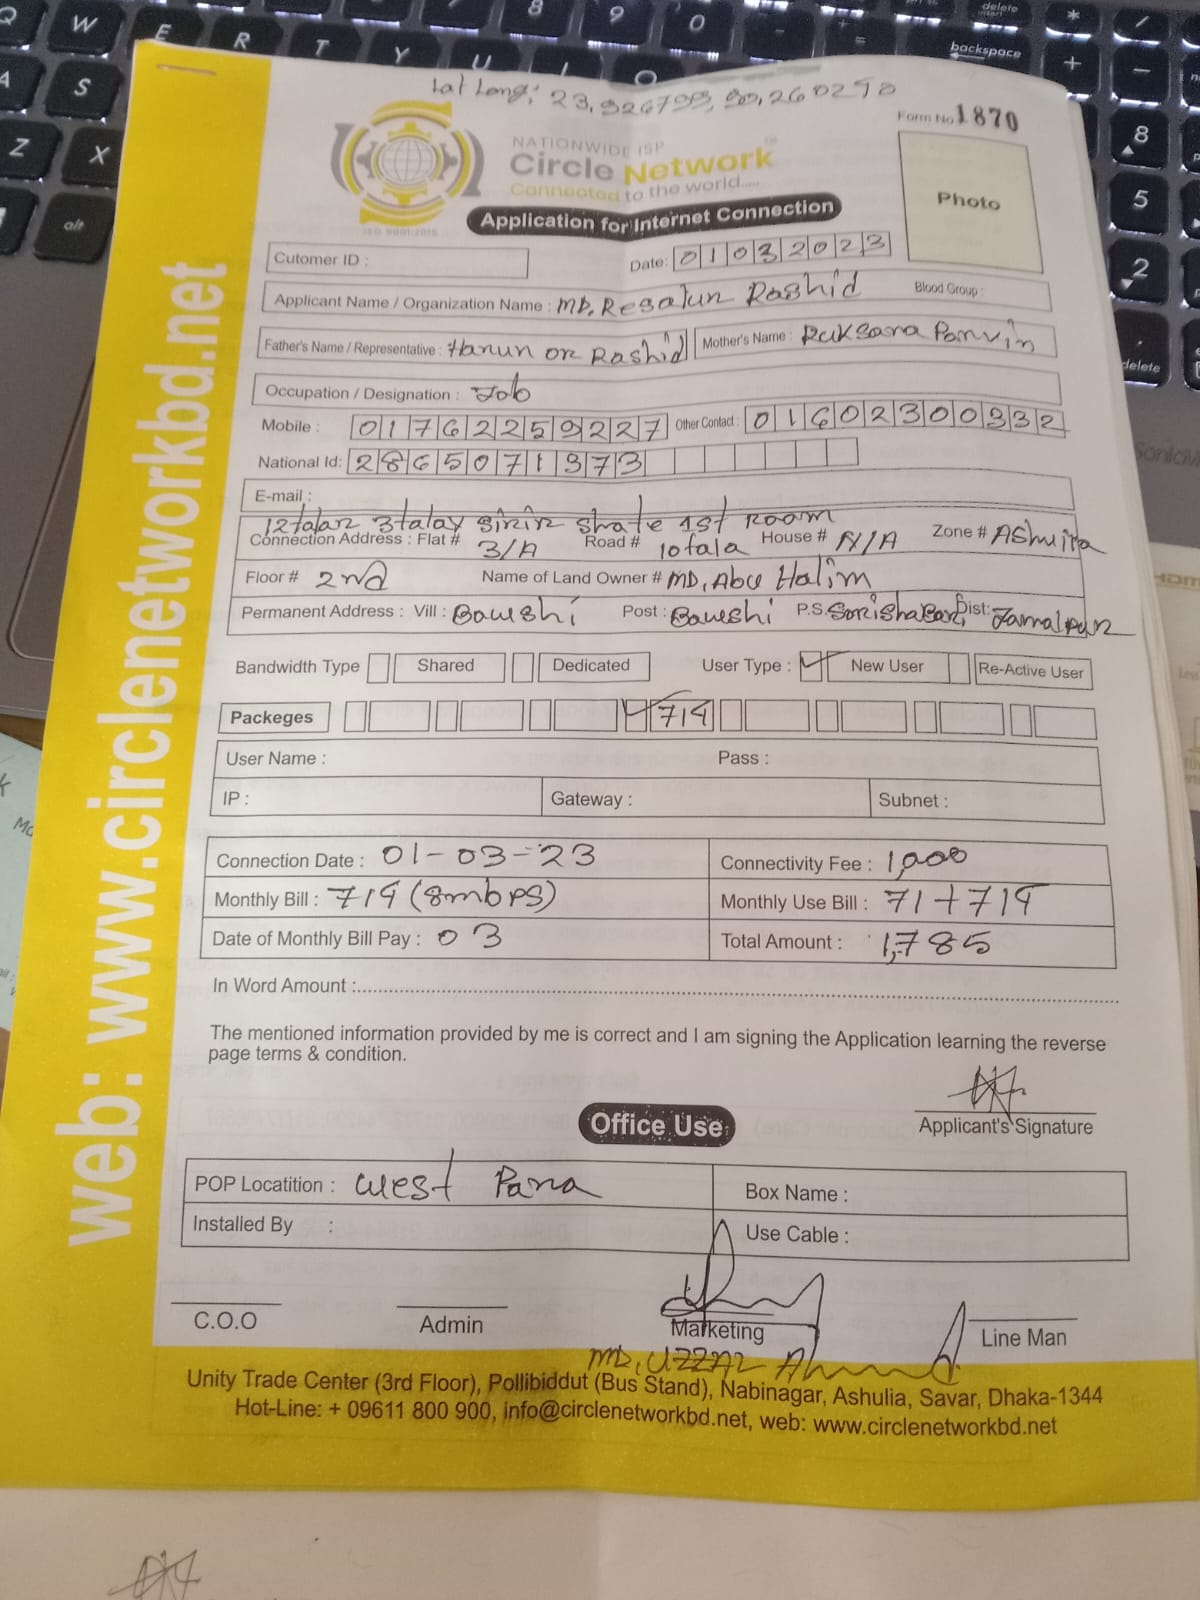 Lat Long: 23,926799, 90,260290
Form No 1870
NATIONWIDE ISP
Circle Network
Connected to the world.....
ISO 9001:2015
Photo
Application for Internet Connection
Cutomer ID :
Date: 01032023
Applicant Name / Organization Name : MD, Resatun Rashid Blood Group :
Father's Name / Representative : Harun or Rashid Mother's Name : Ruksana Parvin
Occupation / Designation : Job
Mobile : 01762259227 Other Contact : 01602300332
National Id: 2865071373
E-mail :
12talar 3talay sirir shate 1st Room
Connection Address : Flat # 3/A Road # 10tala House # N/A Zone # Ashulia
Floor # 2nd Name of Land Owner # MD, Abu Halim
Permanent Address : Vill : Baushi Post : Baushi P.S. Sorishabari Dist: Jamalpur
Bandwidth Type Shared Dedicated User Type : New User Re-Active User
Packeges 714
User Name : Pass :
IP : Gateway : Subnet :
Connection Date : 01-03-23 Connectivity Fee : 1,000
Monthly Bill : 714 (8mbps) Monthly Use Bill : 71+714
Date of Monthly Bill Pay : 03 Total Amount : 1,785
In Word Amount :
The mentioned information provided by me is correct and I am signing the Application learning the reverse
page terms & condition.
Applicant's Signature
Office Use
POP Locatition : West Para Box Name :
Installed By : Use Cable :
C.O.O Admin Marketing Line Man
MD, UZZAL Ahmed
Unity Trade Center (3rd Floor), Pollibiddut (Bus Stand), Nabinagar, Ashulia, Savar, Dhaka-1344
Hot-Line: + 09611 800 900, info@circlenetworkbd.net, web: www.circlenetworkbd.net
web: www.circlenetworkbd.net
Q W E R T Y U I O
8 9 0
delete
insert
backspace
A S
Z X
alt
8
5
2
delete